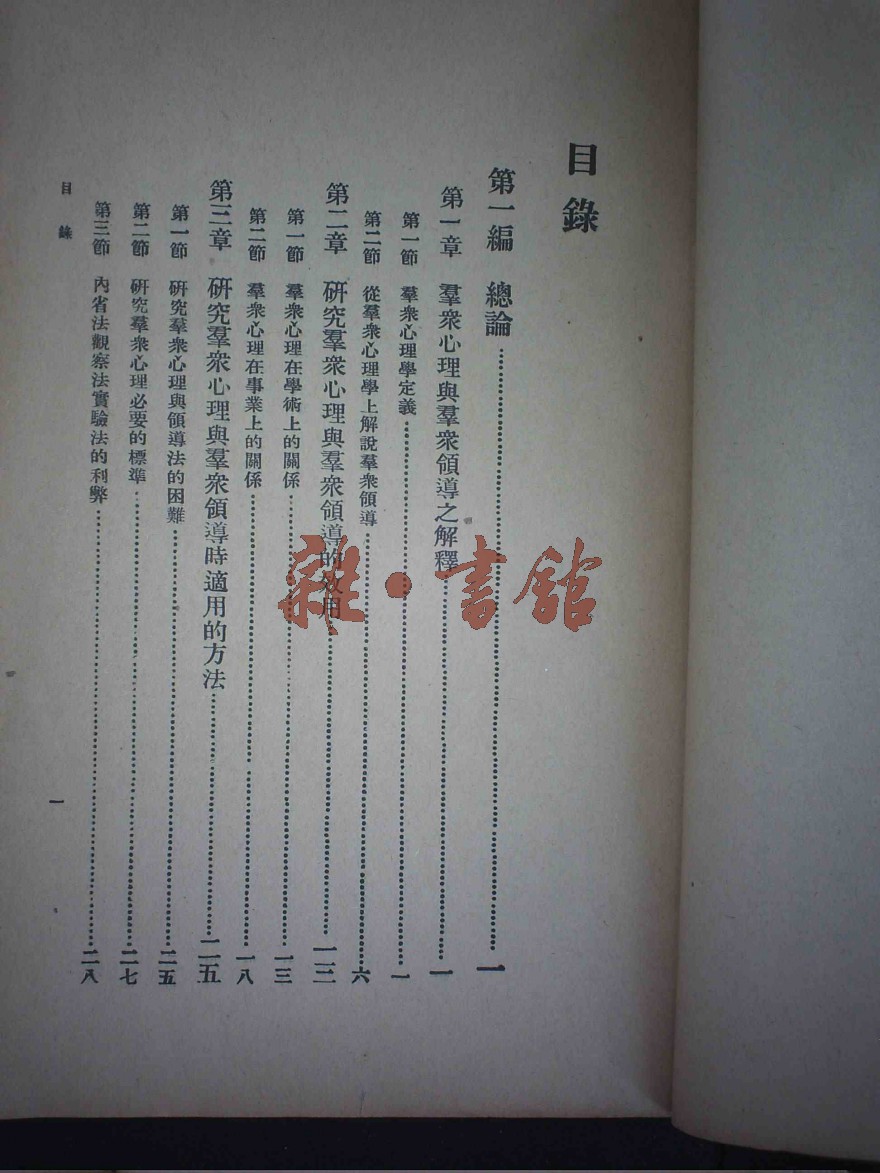 目錄
第一編 總論…………一
第一章 羣衆心理與羣衆領導之解釋…………一
第一節 羣衆心理學定義…………一
第二節 從羣衆心理學上解說羣衆領導…………六
第二章 研究羣衆心理與羣衆領導的效用…………一三
第一節 羣衆心理在學術上的關係…………一三
第二節 羣衆心理在事業上的關係…………一八
第三章 研究羣衆心理與羣衆領導時適用的方法…………二五
第一節 研究羣衆心理與領導法的困難…………二五
第二節 研究羣衆心理必要的標準…………二七
第三節 內省法觀察法實驗法的利弊…………二八
目錄
一
雜·書館